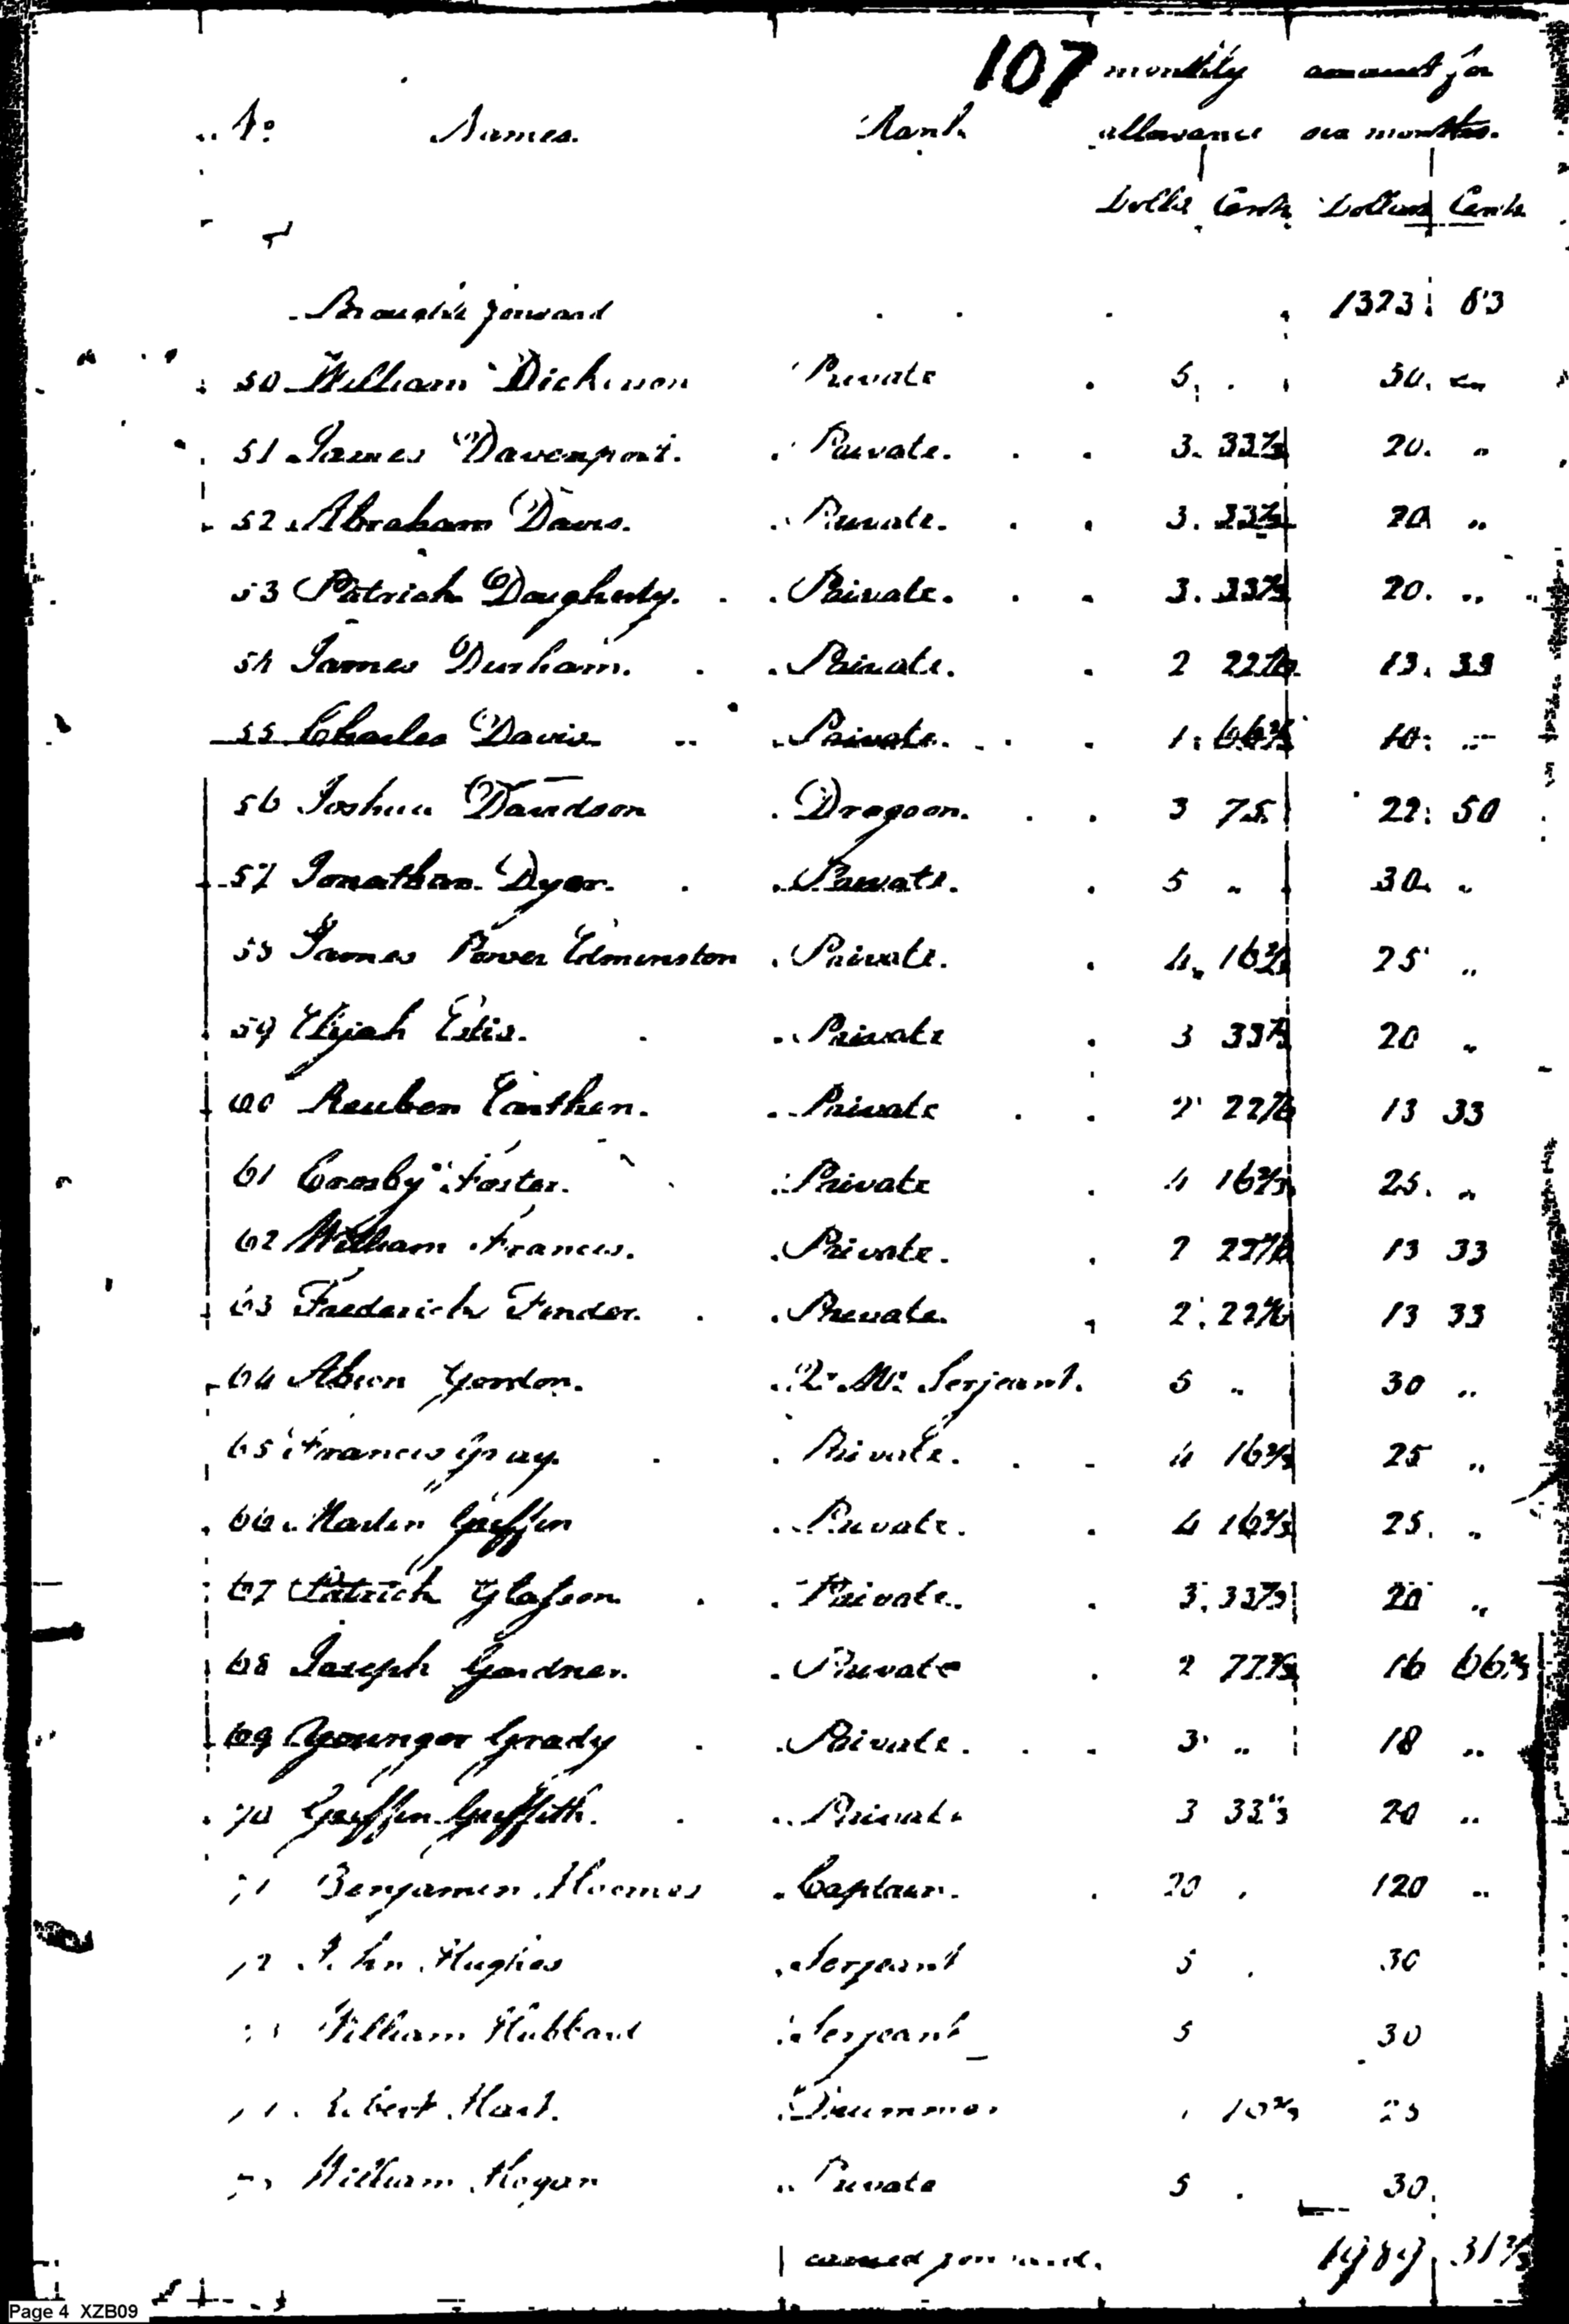 107 monthly amount for
No Names. Rank allowance six months.
Dolls Cents Dollars Cents
Brought forward 1323 83
50 William Dickinson Private 5 30 "
51 James Davenport. Private. 3. 33⅓ 20. "
52 Abraham Davis. Private. 3. 33⅓ 20 "
53 Patrick Dougherty. Private. 3. 33⅓ 20. "
54 James Durham. Private. 2 22 13. 33
55 Charles Davis Private. 1. 66⅔ 10. "
56 Joshua Davidson Dragoon. 3 75 22. 50
57 Jonathan Dyer. Private. 5 " 30. "
58 James Power Edminston Private. 4. 16⅔ 25 "
59 Elijah Estis. Private 3 33⅓ 20 "
60 Reuben Earthen. Private 2 22 13 33
61 Crosby Foster. Private 4 16⅔ 25. "
62 William Francis. Private. 2 22 13 33
63 Frederick Fender. Private. 2. 22 13 33
64 Gordon. Qr. Mr. Serjeant. 5 " 30 "
65 Francis Gray. Private. 4 16⅔ 25 "
66 Martin Griffin Private. 4 16⅔ 25. "
67 Patrick Glasson Private. 3. 33⅓ 20 "
68 Joseph Gardner. Private 2 77 16 66⅔
69 Younger Grady Private. 3. " 18 "
70 Griffin Griffith. Private 3 33⅓ 20 "
71 Benjamin Hoomes Captain. 20 120 "
72 John Hughes Serjeant 5 30
William Hubbard Serjeant 5 30
Hart. Drummer 25
William Hogan Private 5 30.
carried forward. 1989. 31⅔
Page 4 XZB09